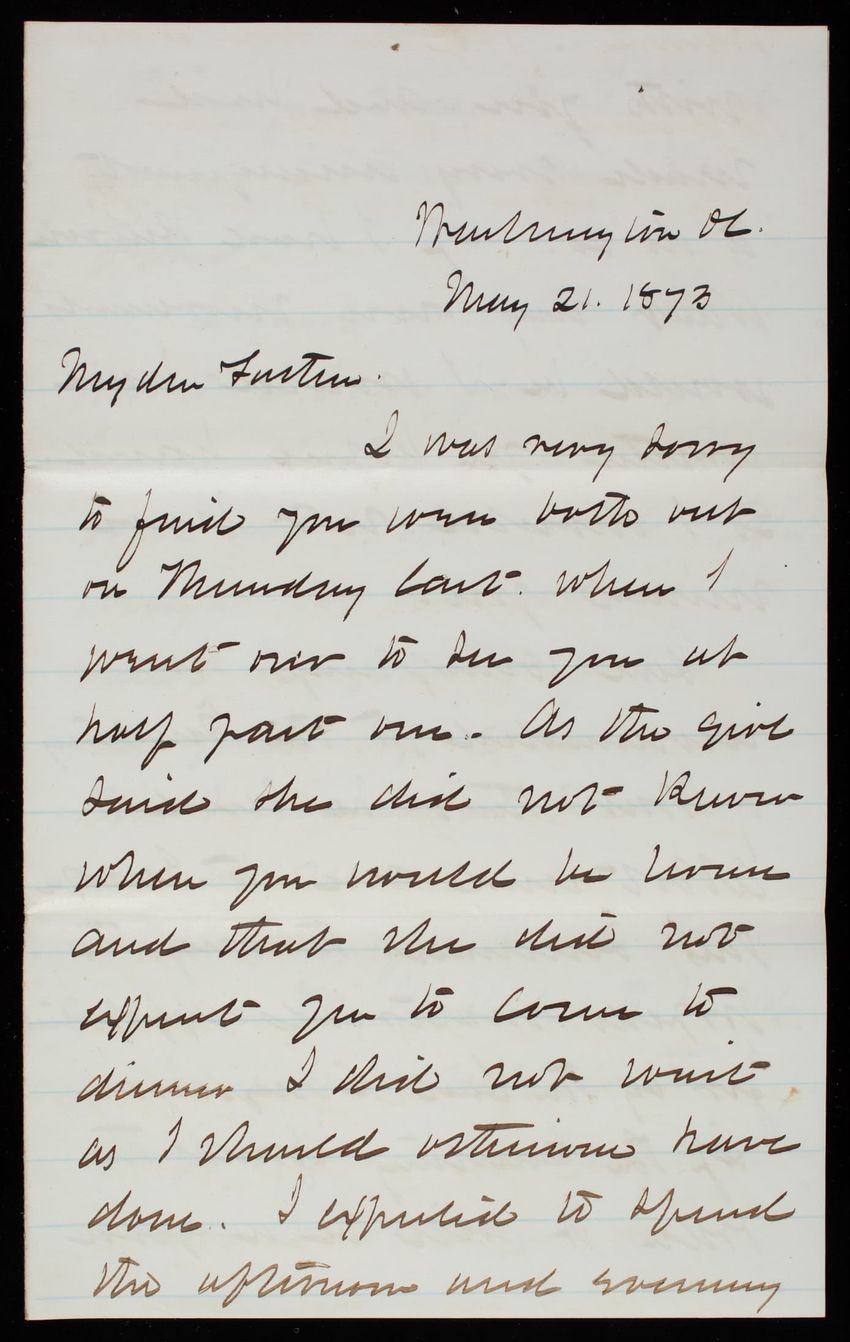 Washington DC.
May 21. 1873
My dear
I was very sorry
to find you were both out
on Monday last. when I
went over to see you at
half past one. As the girl
said she did not know
when you would be home
and that she did not
expect you to come to
dinner I did not wait
as I should otherwise have
done. I expected to spend
the afternoon and evening